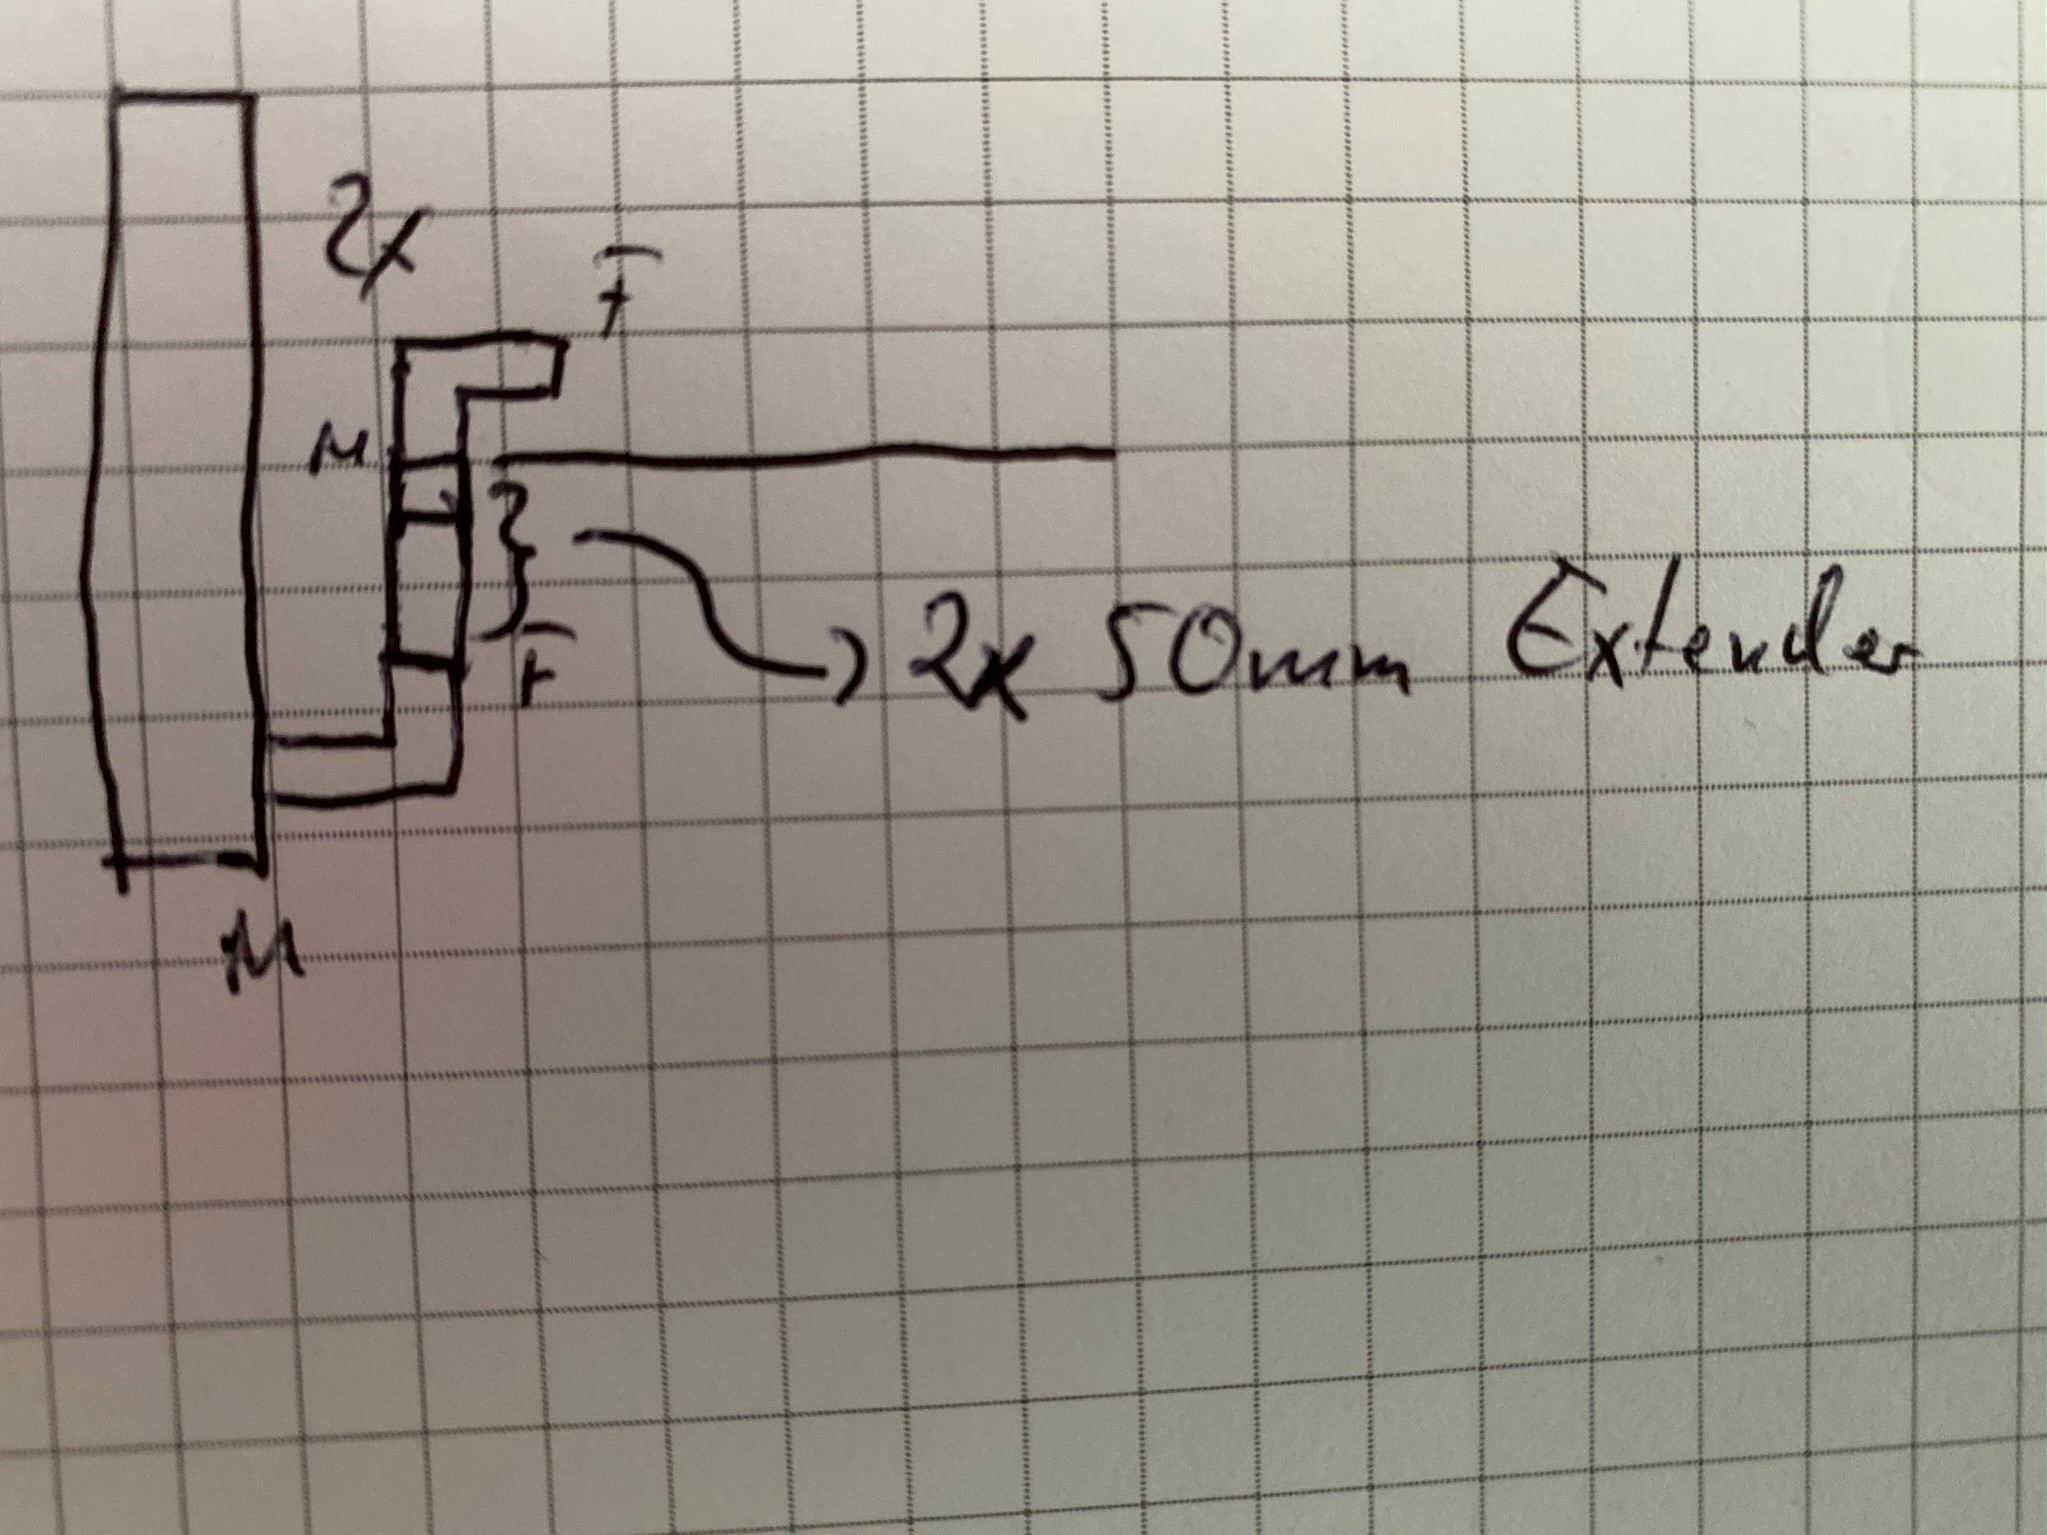 2x
F
M
F
2x 50mm Extender
M